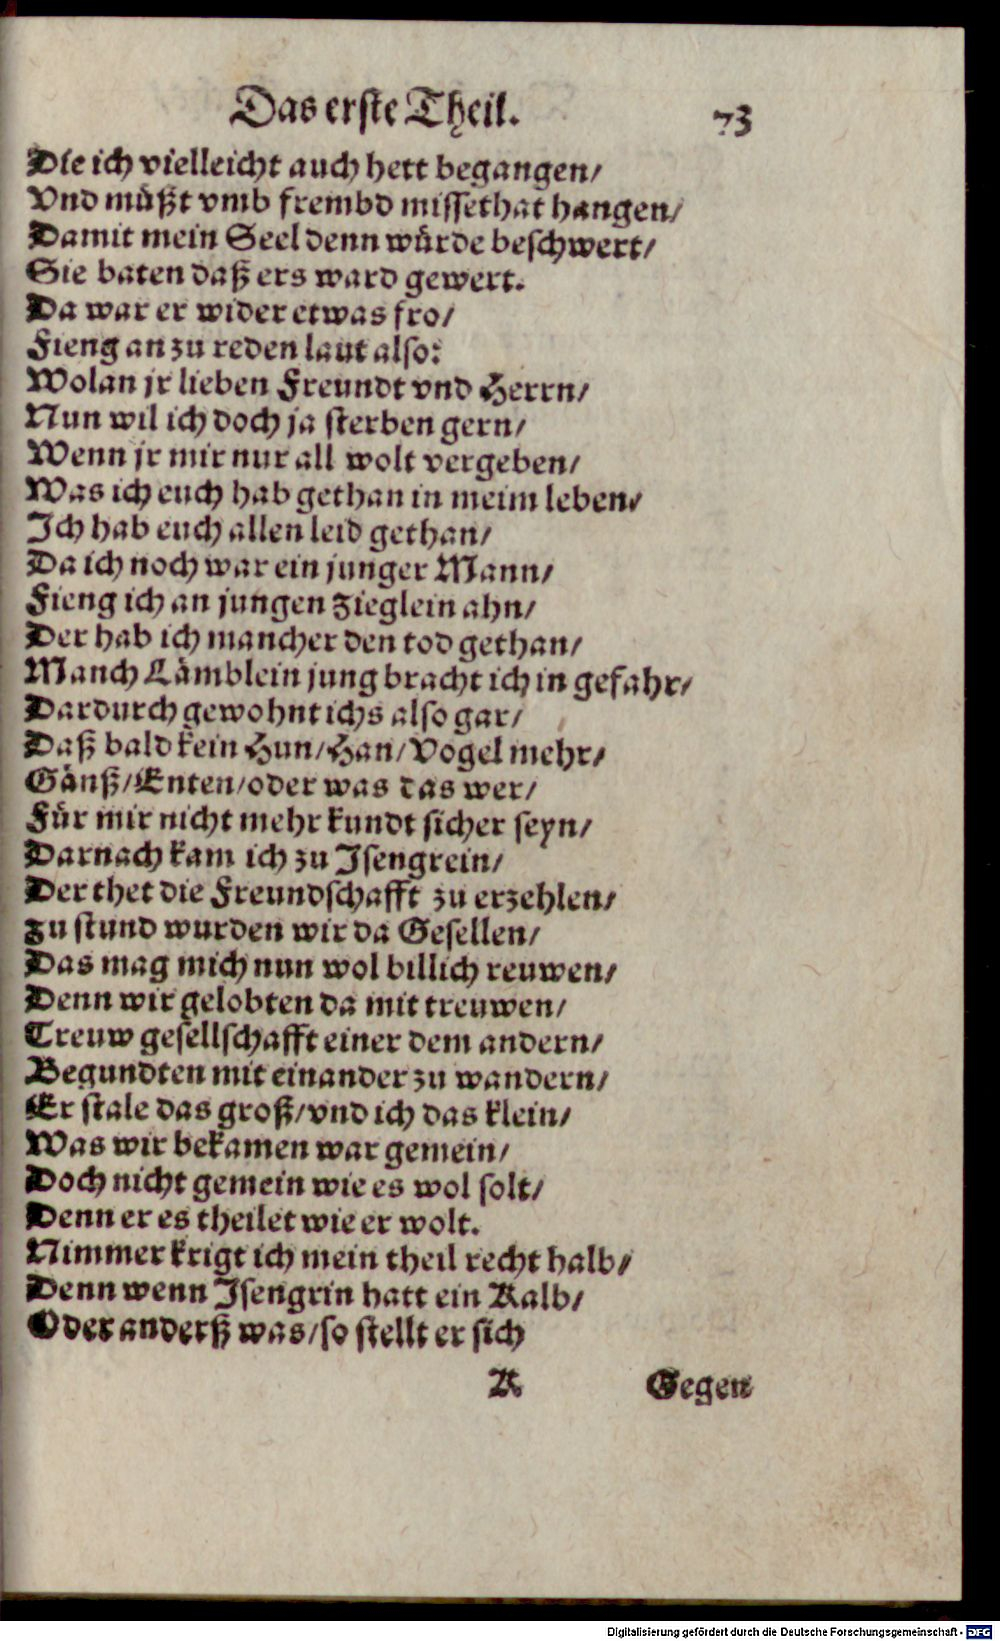 Das erste Theil. 73
Die ich vielleicht auch hett begangen/
Vnd müßt vmb frembd missethat hangen/
Damit mein Seel denn würde beschwert/
Sie baten daß ers ward gewert.
Da war er wider etwas fro/
Fieng an zu reden laut also:
Wolan jr lieben Freundt vnd Herrn/
Nun wil ich doch ja sterben gern/
Wenn jr mir nur all wolt vergeben/
Was ich euch hab gethan in meim leben/
Ich hab euch allen leid gethan/
Da ich noch war ein junger Mann/
Fieng ich an jungen Zieglein ahn/
Der hab ich mancher den tod gethan/
Manch Lämblein jung bracht ich in gefahr/
Dardurch gewohnt ichs also gar/
Daß bald kein Hun/Han/Vogel mehr/
Gänß/Enten/oder was das wer/
Für mir nicht mehr kundt sicher seyn/
Darnach kam ich zu Isengrein/
Der thet die Freundschafft zu erzehlen/
Zu stund wurden wir da Gesellen/
Das mag mich nun wol billich reuwen/
Denn wir gelobten da mit treuwen/
Treuw gesellschafft einer dem andern/
Begundten mit einander zu wandern/
Er stale das groß/vnd ich das klein/
Was wir bekamen war gemein/
Doch nicht gemein wie es wol solt/
Denn er es theilet wie er wolt.
Nimmer krigt ich mein theil recht halb/
Denn wenn Isengrin hatt ein Kalb/
Oder anderß was/so stellt er sich
K Gegen
Digitalisierung gefördert durch die Deutsche Forschungsgemeinschaft - DFG